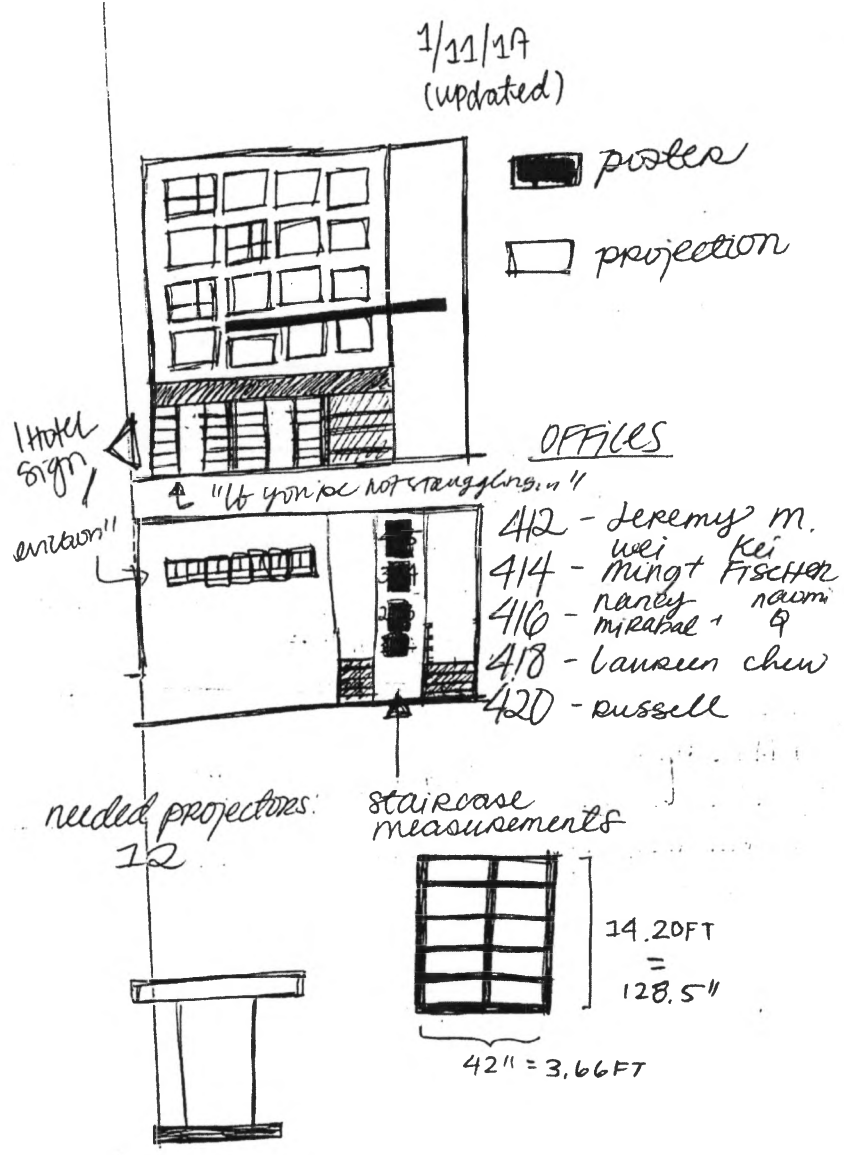 1/11/17
(updated)
poster
projection
I Hotel
sign
"If you're not struggling..."
OFFICES
412 - Jeremy M.
wei Kei
414 - ming + Fischer
nancy naomi
416 - mirabal + Q
418 - Laureen chew
420 - Russell
needed projectors:
12
staircase
measurements
14.20FT
=
128.5"
42" = 3.66FT